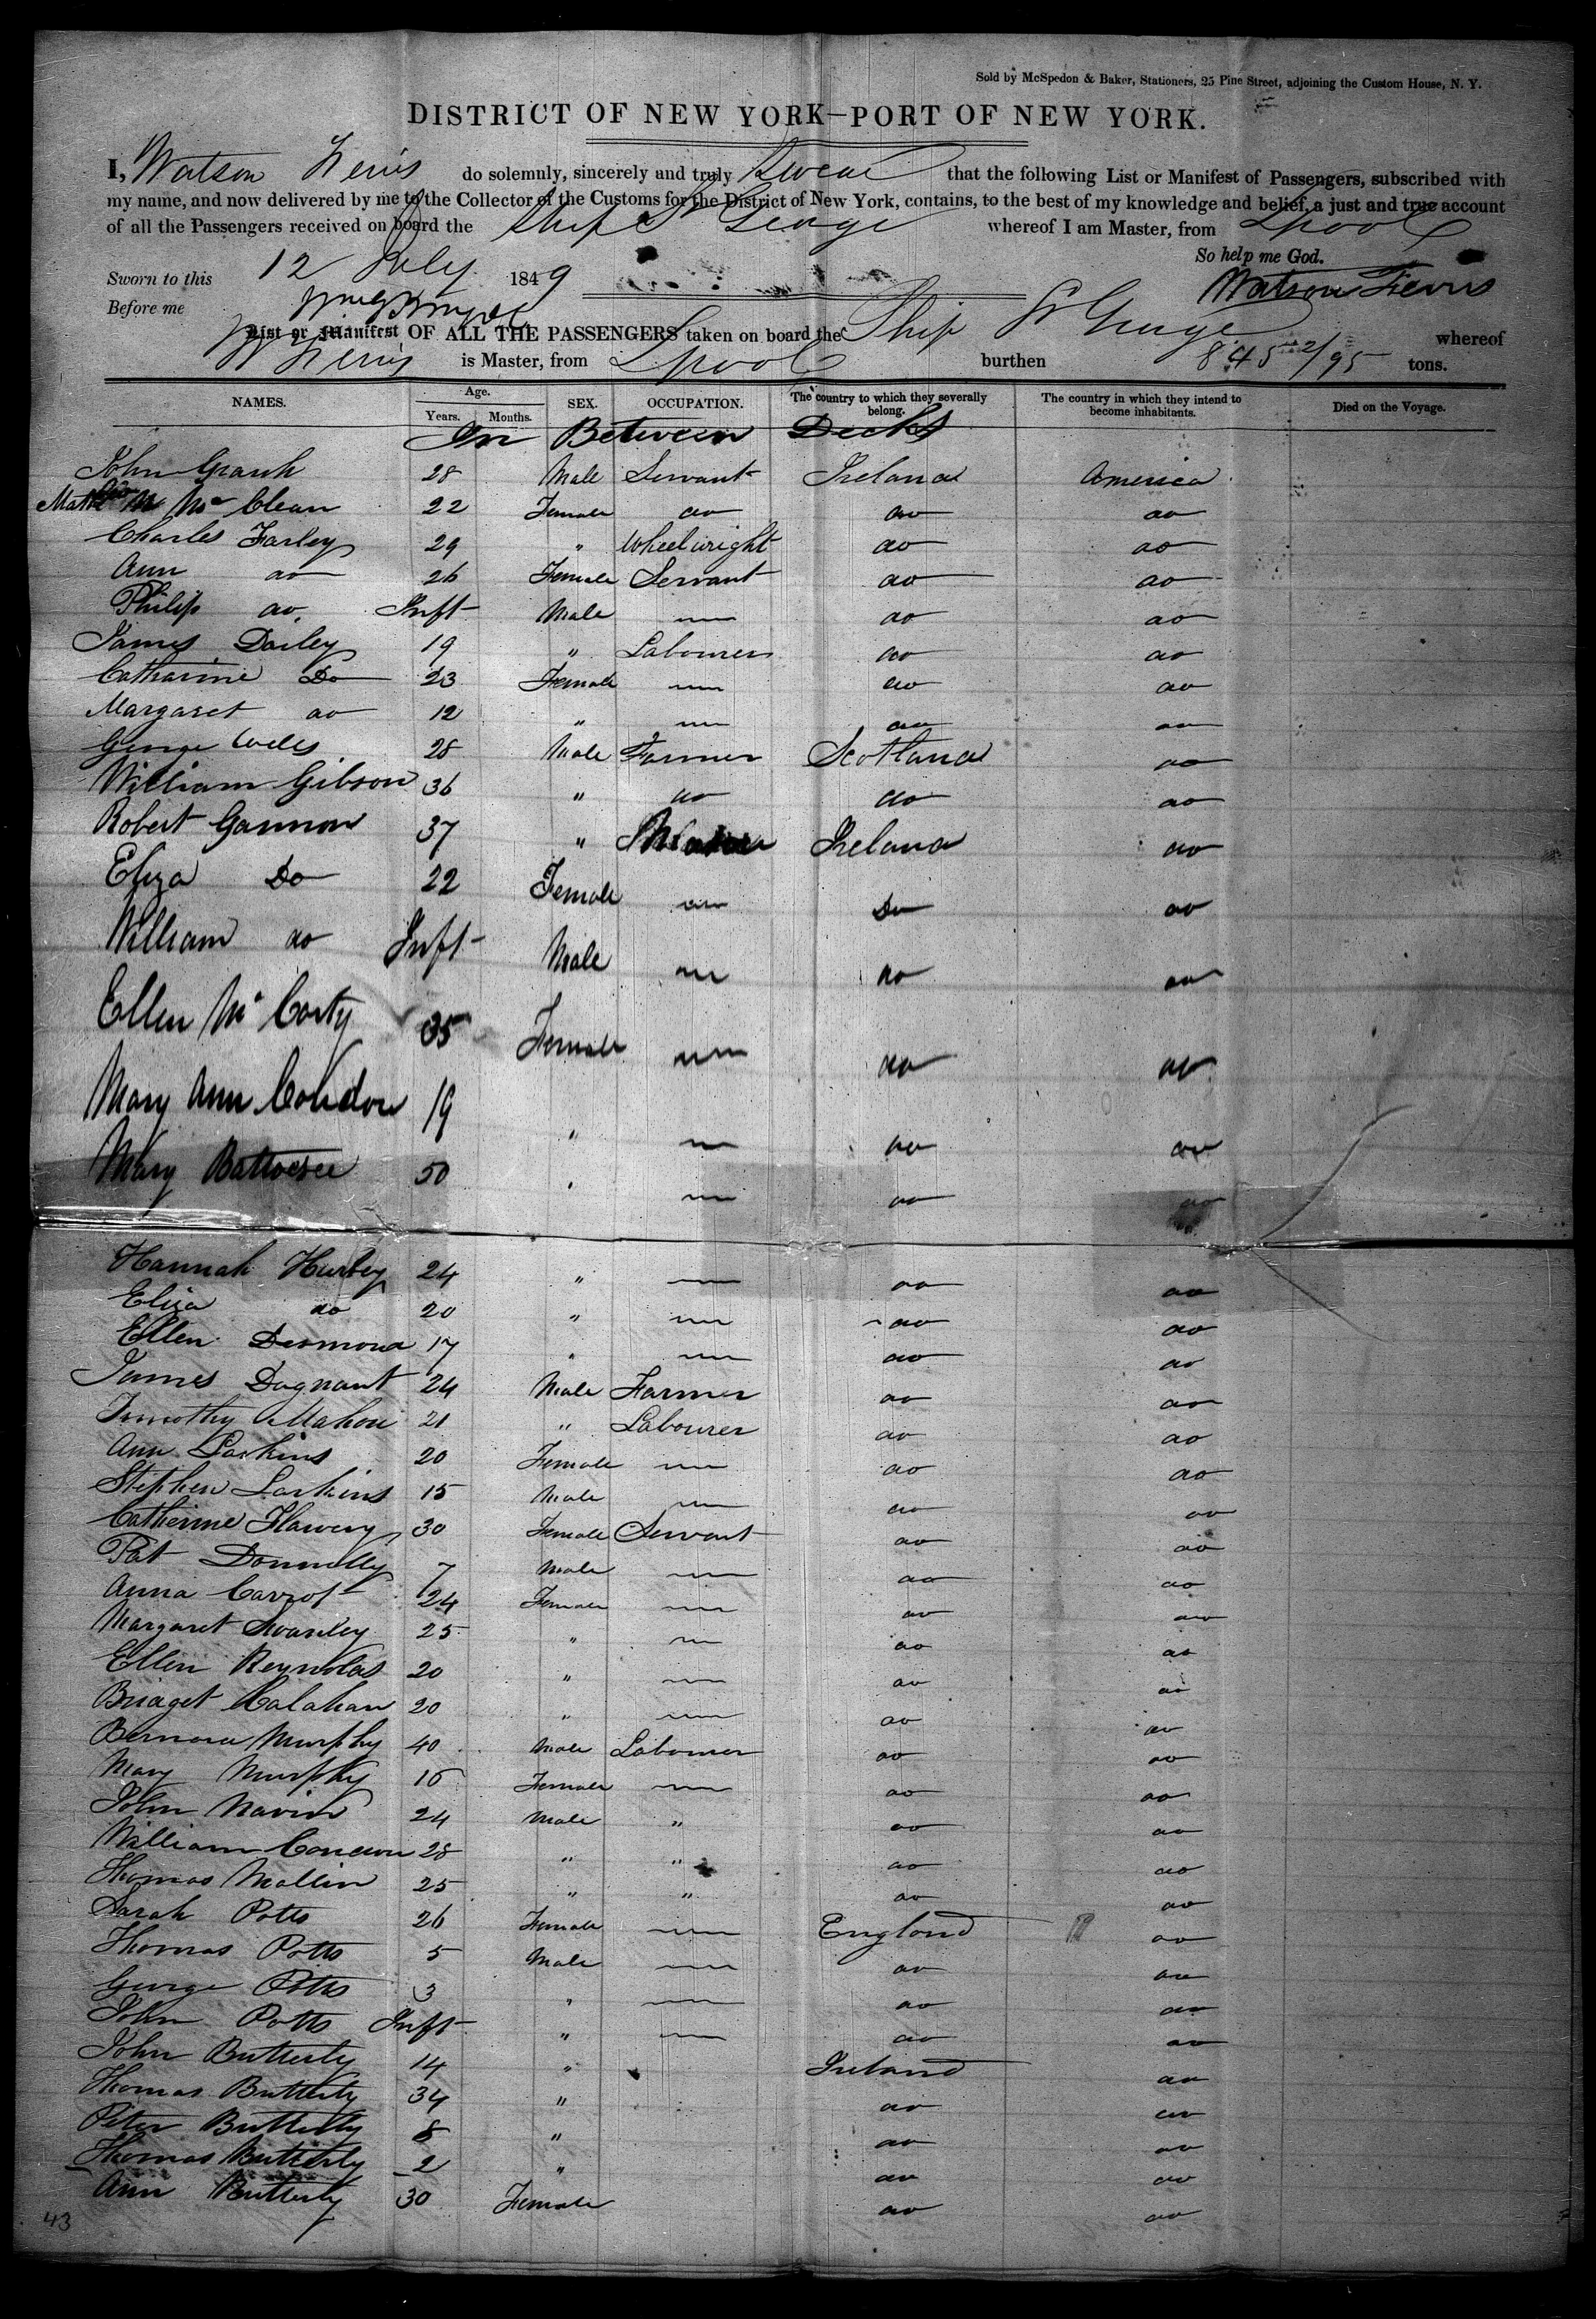 Sold by McSpedon & Baker, Stationers, 25 Pine Street, adjoining the Custom House, N. Y.
DISTRICT OF NEW YORK—PORT OF NEW YORK.
I, Watson Ferris do solemnly, sincerely and truly Swear that the following List or Manifest of Passengers, subscribed with
my name, and now delivered by me to the Collector of the Customs for the District of New York, contains, to the best of my knowledge and belief, a just and true account
of all the Passengers received on board the Ship St George whereof I am Master, from Lpool
So help me God.
Sworn to this 12 July 1849 Watson Ferris
Before me
List or Manifest OF ALL THE PASSENGERS taken on board the Ship St George whereof
W Ferris is Master, from Lpool burthen 845 2/95 tons.
NAMES. Age. Years. Months. SEX. OCCUPATION. The country to which they severally belong. The country in which they intend to become inhabitants. Died on the Voyage.
In Between Decks
John 28 Male Servant Ireland America
Mc Clean 22 Female do do do
Charles Farley 29 " Wheelwright do do
Ann do 26 Female Servant do do
Philip do Inft Male — do do
James Darley 19 " Labourer do do
Catharine Do 23 Female — do do
Margaret do 12 " — do do
George Wells 28 Male Farmer Scotland do
William Gibson 36 " do do do
Robert Gannon 37 " Ireland do
Eliza Do 22 Female — Do do
William do Inft Male — do do
Ellen Mc Carty 35 Female — do do
Mary Ann Condon 19 " — do do
Mary 50 " — do do
Hannah Hurley 24 " — do do
Eliza do 20 " — do do
Ellen Desmond 17 " — do do
James Dagnant 24 Male Farmer do do
Timothy Mahon 21 " Labourer do do
Ann Larkins 20 Female — do do
Stephen Larkins 15 Male — do do
Catherine 30 Female Servant do do
Pat Donnolly 7 Male — do do
Anna 24 Female — do do
Margaret 25 " — do do
Ellen Reynolds 20 " — do do
Bridget Calahan 20 " — do do
Bernard Murphy 40 Male Labourer do do
Mary Murphy Female — do do
John Navin 24 Male " do do
William Condon 28 " " do do
Thomas Mallin 25 " " do do
Sarah Potts 26 Female — England do
Thomas Potts 5 Male — do do
George Potts 3 " — do do
John Potts Inft " — do do
John Butterly 14 " Ireland do
Thomas Butterly 34 " do do
Peter Butterly 8 " do do
Thomas Butterly 2 " do do
Ann Butterly 30 Female do do
43